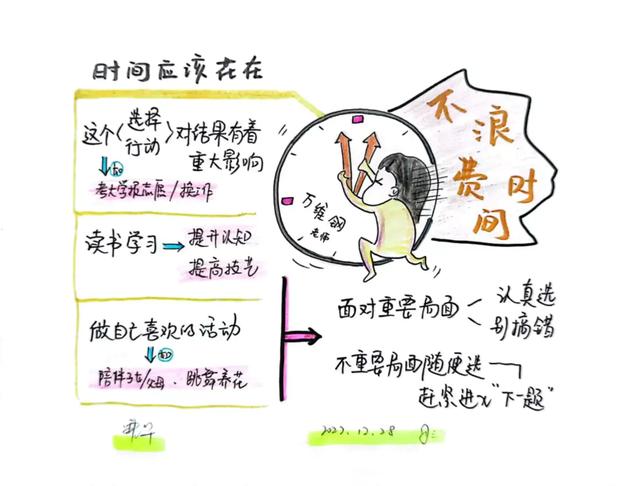 时间应该花在
不浪费时间
这个选择
行动对结果有着
重大影响
如
考大学报志愿/换工作
万维钢
老师
读书学习→提升认知
提高技艺
做自己喜欢的活动
如
跳舞养花
面对重要局面
认真选
别搞错
不重要局面随便选
赶紧进入"下一题"
2022.12.28